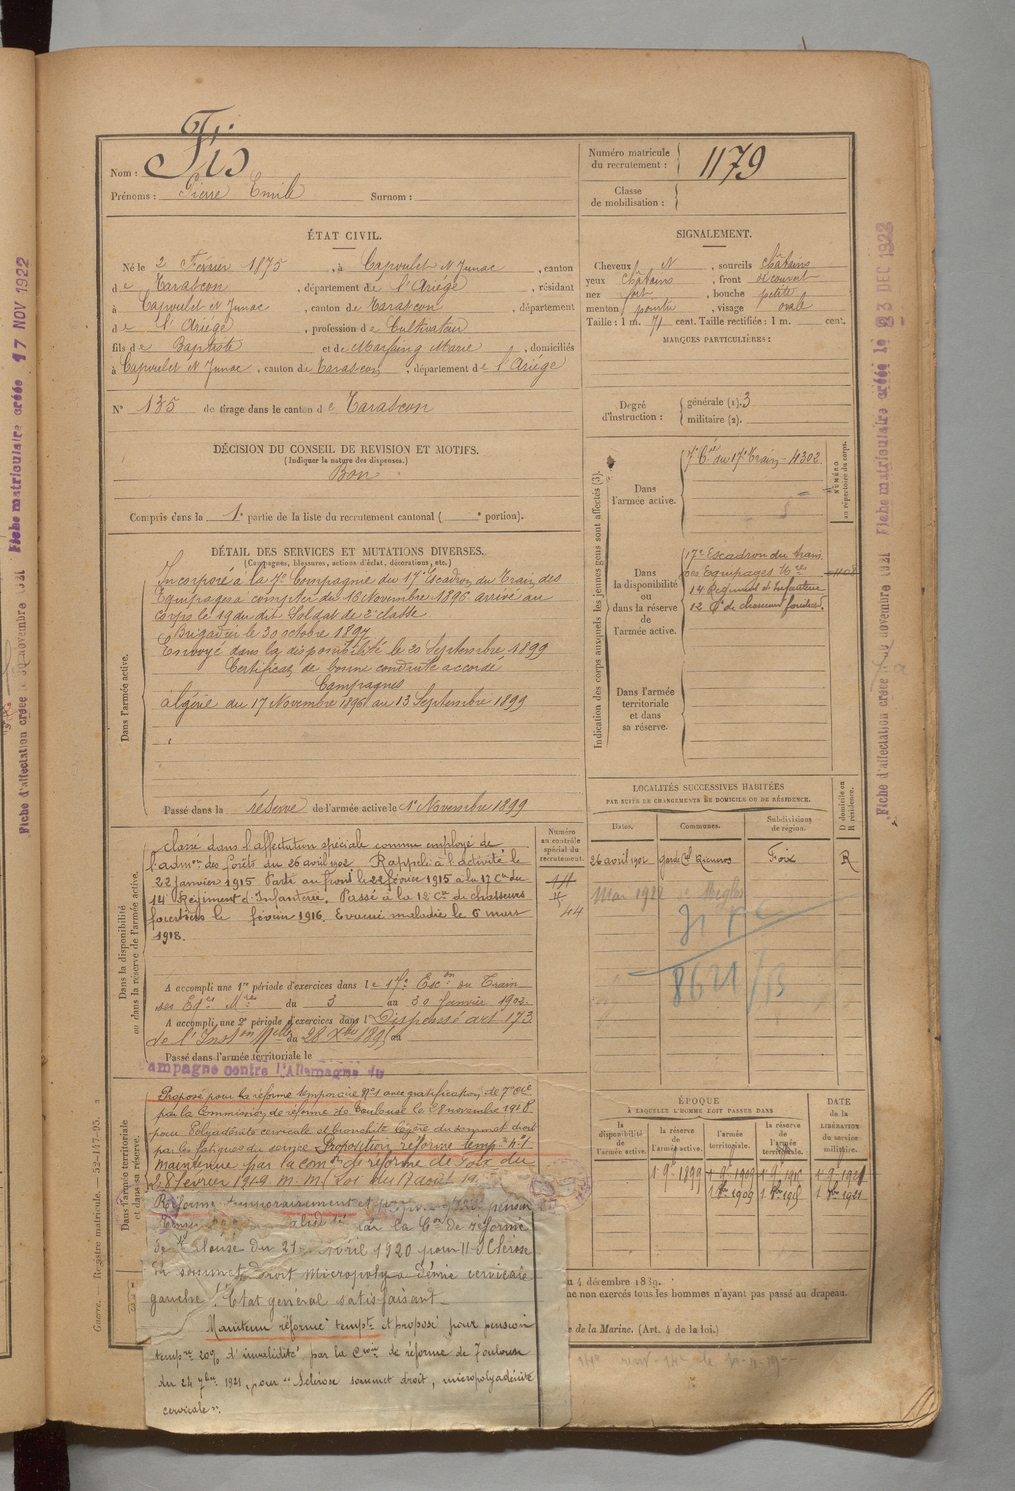 Nom : Fis
Prénoms : Pierre Emile Surnom :
Numéro matricule du recrutement : 1179
Classe de mobilisation :
ÉTAT CIVIL.
Né le 2 Février 1875, à Capoulet et Junac, canton
de Tarascon, département de l'Ariège, résidant
à Capoulet et Junac, canton de Tarascon, département
de l'Ariège, profession de Cultivateur
fils de Baptiste et de Marfaing Marie, domiciliés
à Capoulet et Junac, canton de Tarascon, département de l'Ariège
N° 135 de tirage dans le canton de Tarascon
SIGNALEMENT.
Cheveux N, sourcils châtains
yeux châtains, front découvert
nez fort, bouche petite
menton pointu, visage ovale
Taille : 1 m. 71 cent. Taille rectifiée : 1 m. cent.
MARQUES PARTICULIÈRES :
Degré d'instruction : générale (1). 3
militaire (2).
DÉCISION DU CONSEIL DE REVISION ET MOTIFS.
(Indiquer la nature des dispenses.)
Bon
Compris dans la 1e partie de la liste du recrutement cantonal ( e portion).
DÉTAIL DES SERVICES ET MUTATIONS DIVERSES.
(Campagnes, blessures, actions d'éclat, décorations, etc.)
Dans l'armée active.
Incorporé à la 7e Compagnie du 17e Escadron du Train des
Equipages à compter du 16 Novembre 1896 arrivé au
corps le 19 du dit Soldat de 2e classe
Brigadier le 30 octobre 1897
Envoyé dans la disponibilité le 20 Septembre 1899
Certificat de bonne conduite accordé
Campagnes
Algérie du 17 Novembre 1896 au 13 Septembre 1899
Passé dans la réserve de l'armée active le 1er Novembre 1899
Indication des corps auxquels les jeunes gens sont affectés (3).
NUMÉRO au répertoire du corps.
Dans l'armée active.
7e Cie du 17e Train - 4302
Dans la disponibilité ou dans la réserve de l'armée active.
17e Escadron du train
des Equipages Mres
14 Régiment d'Infanterie
12 Cie de chasseurs forestiers
Dans l'armée territoriale et dans sa réserve.
Dans la disponibilité ou dans la réserve de l'armée active.
Classé dans l'affectation spéciale comme employé de
l'admon des forêts du 26 avril 1902 Rappelé à l'activité le
22 janvier 1915 Parti au front le 22 février 1915 à la 17 Cie du
14 Régiment d'Infanterie. Passé à la 12 Cie de chasseurs
forestiers le février 1916. Evacué maladie le 6 mars
1918.
Numéro au contrôle spécial du recrutement.
44
A accompli une 1re période d'exercices dans le 17e Escon du Train
des Eges Mres du 3 au 30 Janvier 1902
A accompli une 2e période d'exercices dans l Dispensé art 173
de l'Inston Melle du 28 Xbre 1895 au
Passé dans l'armée territoriale le
ampagne contre l'Allemagne du
LOCALITÉS SUCCESSIVES HABITÉES
PAR SUITE DE CHANGEMENTS DE DOMICILE OU DE RÉSIDENCE.
Dates. Communes. Subdivisions de région. D domicile ou R résidence.
26 avril 1902 Foix R
Mai 1922 Miglos
8621/13
Dans l'armée territoriale et dans sa réserve.
Proposé pour la réforme temporaire No 1 avec gratification de 7e Cie
par la Commission de réforme de Toulouse le 28 novembre 1918
pour Polyadénite cervicale et bronchite légère du sommet droit
par les fatigues du service Proposition réforme tempre n° 1
maintenue par la con de réforme de Foix du
28 février 1919.
par la Con de réforme
de Toulouse du 21 avril 1920 pour Sclérose
du sommet droit micropolyadénie cervicale
gauche. Etat général satisfaisant.
Maintenu réformé tempre et proposé pour pension
tempre 20% d'invalidité par la Cion de réforme de Toulouse
du 24 7bre 1921, pour "Sclérose sommet droit, micropolyadénite
cervicale".
ÉPOQUE
À LAQUELLE L'HOMME DOIT PASSER DANS
la disponibilité de l'armée active. la réserve de l'armée active. l'armée territoriale. la réserve de l'armée territoriale.
DATE de la LIBÉRATION du service militaire.
1 9bre 1899 1 9bre 1909 1 9bre 1915 1 9bre 1921
u 4 décembre 1889.
ne non exercés tous les hommes n'ayant pas passé au drapeau.
de la Marine. (Art. 4 de la loi.)
Guerre. — Registre matricule. — 52-147-95.
Fiche matriculaire créée 17 NOV 1922
Fiche matriculaire créée le 23 DEC 1922